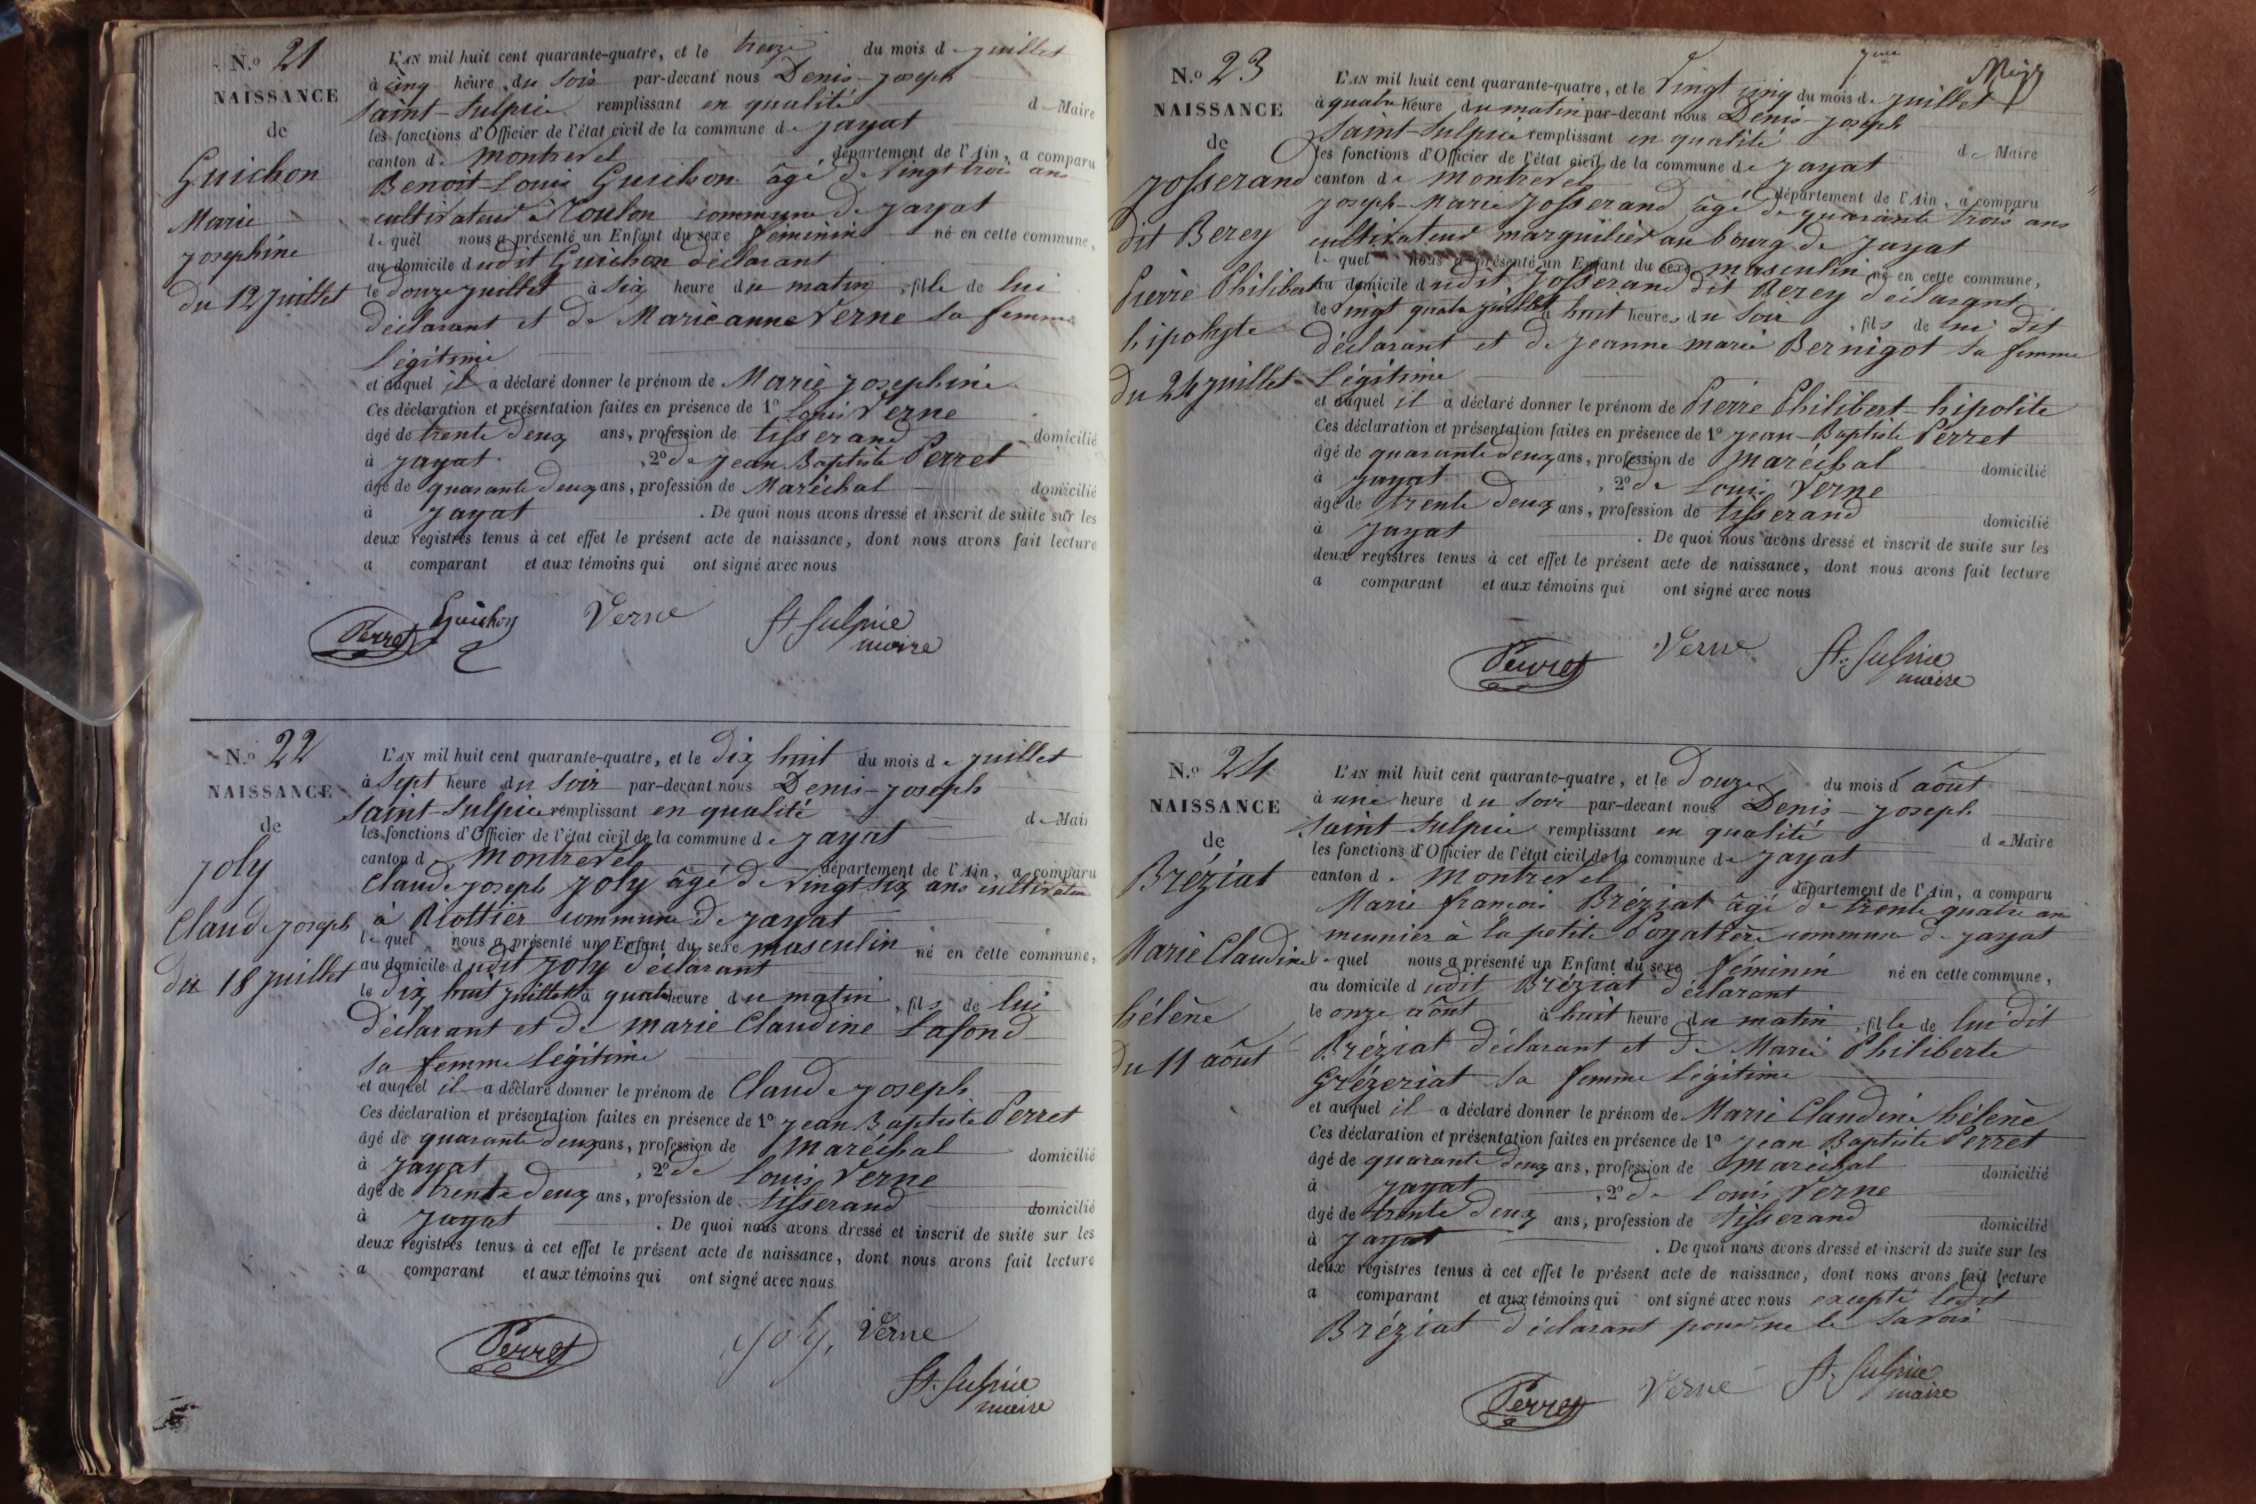 N.º 21
NAISSANCE
de
Guichon
Marie
josephine
du 12 juillet
L'AN mil huit cent quarante-quatre, et le treize du mois de juillet
à cinq heure du soir par-devant nous Denis-joseph
Saint-Sulpice remplissant en qualité de Maire
les fonctions d'Officier de l'état civil de la commune de jayat
canton de Montrevel département de l'Ain, a comparu
Benoit-Louis Guichon âgé de vingt trois ans
cultivateur à Toulon commune de jayat
lequel nous a présenté un Enfant du sexe féminin né en cette commune,
au domicile dudit Guichon déclarant
le douze juillet à six heure du matin, fille de lui
déclarant et de Marieanne Verne sa femme
légitime
et auquel il a déclaré donner le prénom de Marie josephine
Ces déclaration et présentation faites en présence de 1º Louis Verne
âgé de trente deux ans, profession de tisserand domicilié
à jayat, 2º de jean Baptiste Perret
âgé de quarante deux ans, profession de Maréchal domicilié
à jayat. De quoi nous avons dressé et inscrit de suite sur les
deux registres tenus à cet effet le présent acte de naissance, dont nous avons fait lecture
a comparant et aux témoins qui ont signé avec nous
Perret Guichon Verne St Sulpice
maire
N.º 22
NAISSANCE
de
joly
Claude joseph
du 18 juillet
L'AN mil huit cent quarante-quatre, et le dix huit du mois de juillet
à sept heure du soir par-devant nous Denis-joseph
Saint-Sulpice remplissant en qualité de Mair
les fonctions d'Officier de l'état civil de la commune de jayat
canton de Montrevel département de l'Ain, a comparu
Claude joseph joly âgé de vingt six ans cultivateur
à Riottier commune de jayat
lequel nous a présenté un Enfant du sexe masculin né en cette commune,
au domicile dudit joly déclarant
le dix huit juillet à quatre heure du matin, fils de lui
déclarant et de marie Claudine Lafond
sa femme légitime
et auquel il a déclaré donner le prénom de Claude joseph
Ces déclaration et présentation faites en présence de 1º jean Baptiste Perret
âgé de quarante deux ans, profession de maréchal domicilié
à jayat, 2º de Louis Verne
âgé de trente deux ans, profession de tisserand domicilié
à jayat. De quoi nous avons dressé et inscrit de suite sur les
deux registres tenus à cet effet le présent acte de naissance, dont nous avons fait lecture
a comparant et aux témoins qui ont signé avec nous
Perret joly, Verne
St. Sulpice
maire
N.º 23
NAISSANCE
de
josserand
dit Berey
Pierre Philibert
hipolyte
du 24 juillet
L'AN mil huit cent quarante-quatre, et le vingt cinq du mois de juillet
à quatre heure du matin par-devant nous Denis-joseph
Saint-Sulpice remplissant en qualité de Maire
les fonctions d'Officier de l'état civil de la commune de jayat
canton de Montrevel département de l'Ain, a comparu
joseph-Marie josserand âgé de quarante trois ans
cultivateur marguillier au bourg de jayat
lequel nous a présenté un Enfant du sexe masculin né en cette commune,
au domicile dudit josserand dit Berey déclarant
le vingt quatre juillet à huit heures du soir, fils de lui dit
déclarant et de jeanne marie Bernigot sa femme
légitime
et auquel il a déclaré donner le prénom de Pierre Philibert-hipolite
Ces déclaration et présentation faites en présence de 1º jean-Baptiste Perret
âgé de quarante deux ans, profession de maréchal domicilié
à jayat, 2º de Louis Verne
âgé de trente deux ans, profession de tisserand domicilié
à jayat. De quoi nous avons dressé et inscrit de suite sur les
deux registres tenus à cet effet le présent acte de naissance, dont nous avons fait lecture
a comparant et aux témoins qui ont signé avec nous
Perret Verne St. Sulpice
maire
N.º 24
NAISSANCE
de
Bréziat
Marie Claudine
hélène
du 11 août
L'AN mil huit cent quarante-quatre, et le douze du mois d'août
à une heure du soir par-devant nous Denis-joseph
Saint-Sulpice remplissant en qualité de Maire
les fonctions d'Officier de l'état civil de la commune de jayat
canton de Montrevel département de l'Ain, a comparu
Marie françois Bréziat âgé de trente quatre ans
meunier à la petite Poyatière commune de jayat
lequel nous a présenté un Enfant du sexe féminin né en cette commune,
au domicile dudit Bréziat déclarant
le onze août à huit heure du matin, fille de lui dit
Bréziat déclarant et de Marie Philiberte
Grézeriat sa femme légitime
et auquel il a déclaré donner le prénom de Marie Claudine hélène
Ces déclaration et présentation faites en présence de 1º jean Baptiste Perret
âgé de quarante deux ans, profession de maréchal domicilié
à jayat, 2º de Louis Verne
âgé de trente deux ans, profession de tisserand domicilié
à jayat. De quoi nous avons dressé et inscrit de suite sur les
deux registres tenus à cet effet le présent acte de naissance, dont nous avons fait lecture
a comparant et aux témoins qui ont signé avec nous excepté ledit
Bréziat déclarant pour ne le savoir
Perret Verne St. Sulpice
maire